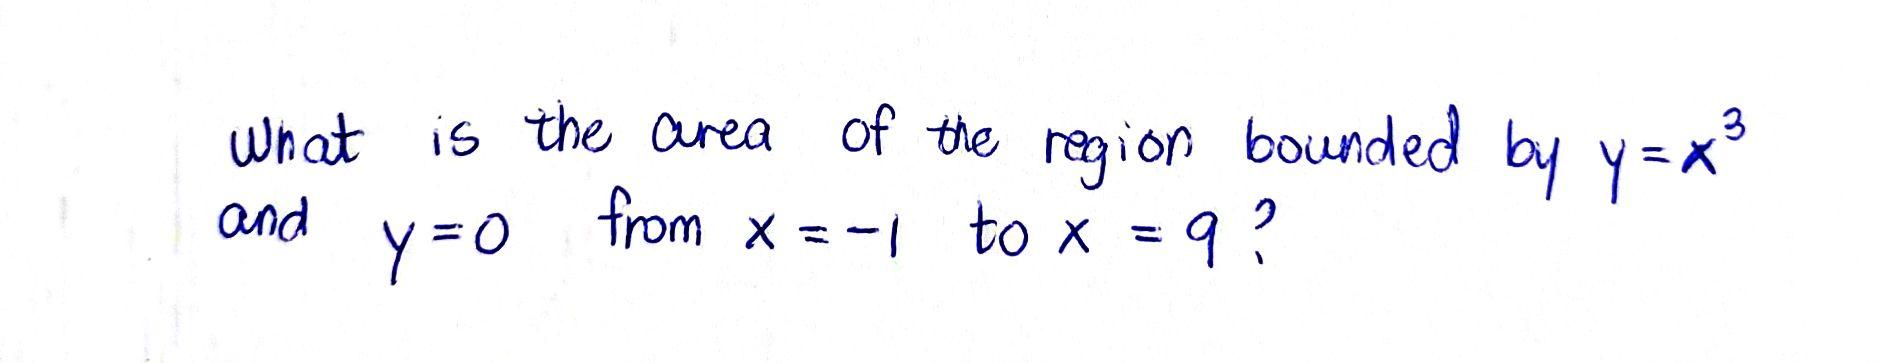 What is the area of the region bounded by y=x³
and y=0 from x=-1 to x=9?